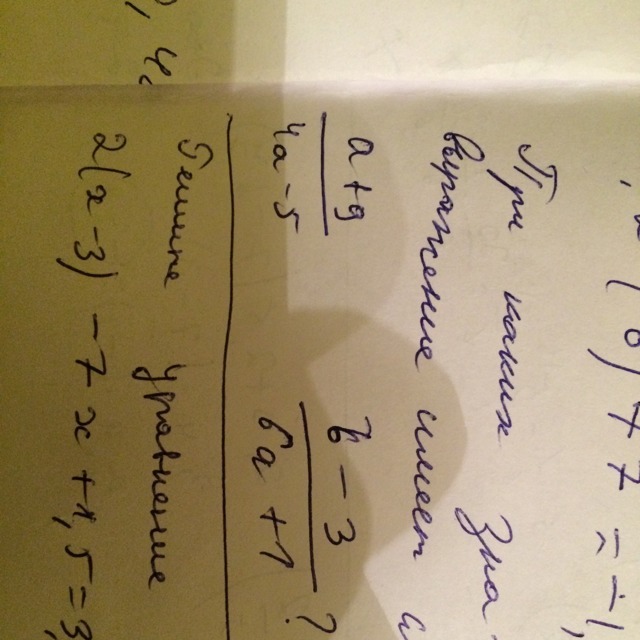 При каких зна
выражение имеет
a+9 b-3
4a-5 6a+1 ?
Решите уравнение
2(x-3) -7x+1,5=3,